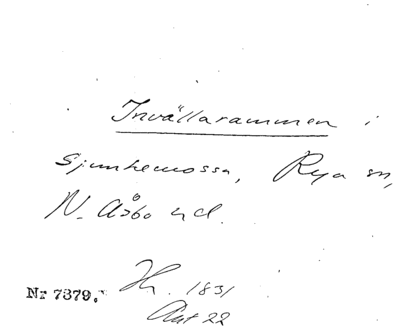 Invållarammen i
Sjunkemossa, Rya sn,
N. Åsbo hd.
Nr 7379. Hn. 1831
Ant 22